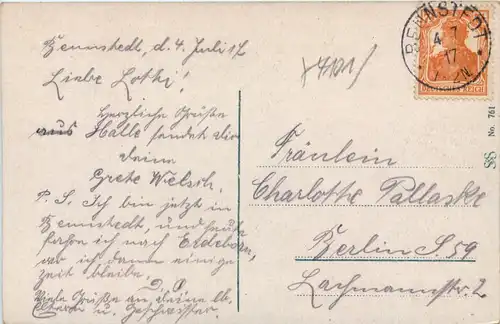 Bennstedt, d. 4. Juli 17
Liebe Lothi!
Herzliche Grüße
aus Halle sendet dir
deine
Grete Welsch.
P. S. Ich bin jetzt in
Bennstedt, und heute
fahre ich nach Erdeborn,
wo ich dann einige
Zeit bleibe.
D. O.
Viele Grüße an deine lb.
Eltern u. Geschwister.
BENNSTEDT
4 7
17
DEUTSCHES REICH
Fräulein
Charlotte Pallaske
Berlin S. 59
Lachmannstr. 2
No. 761